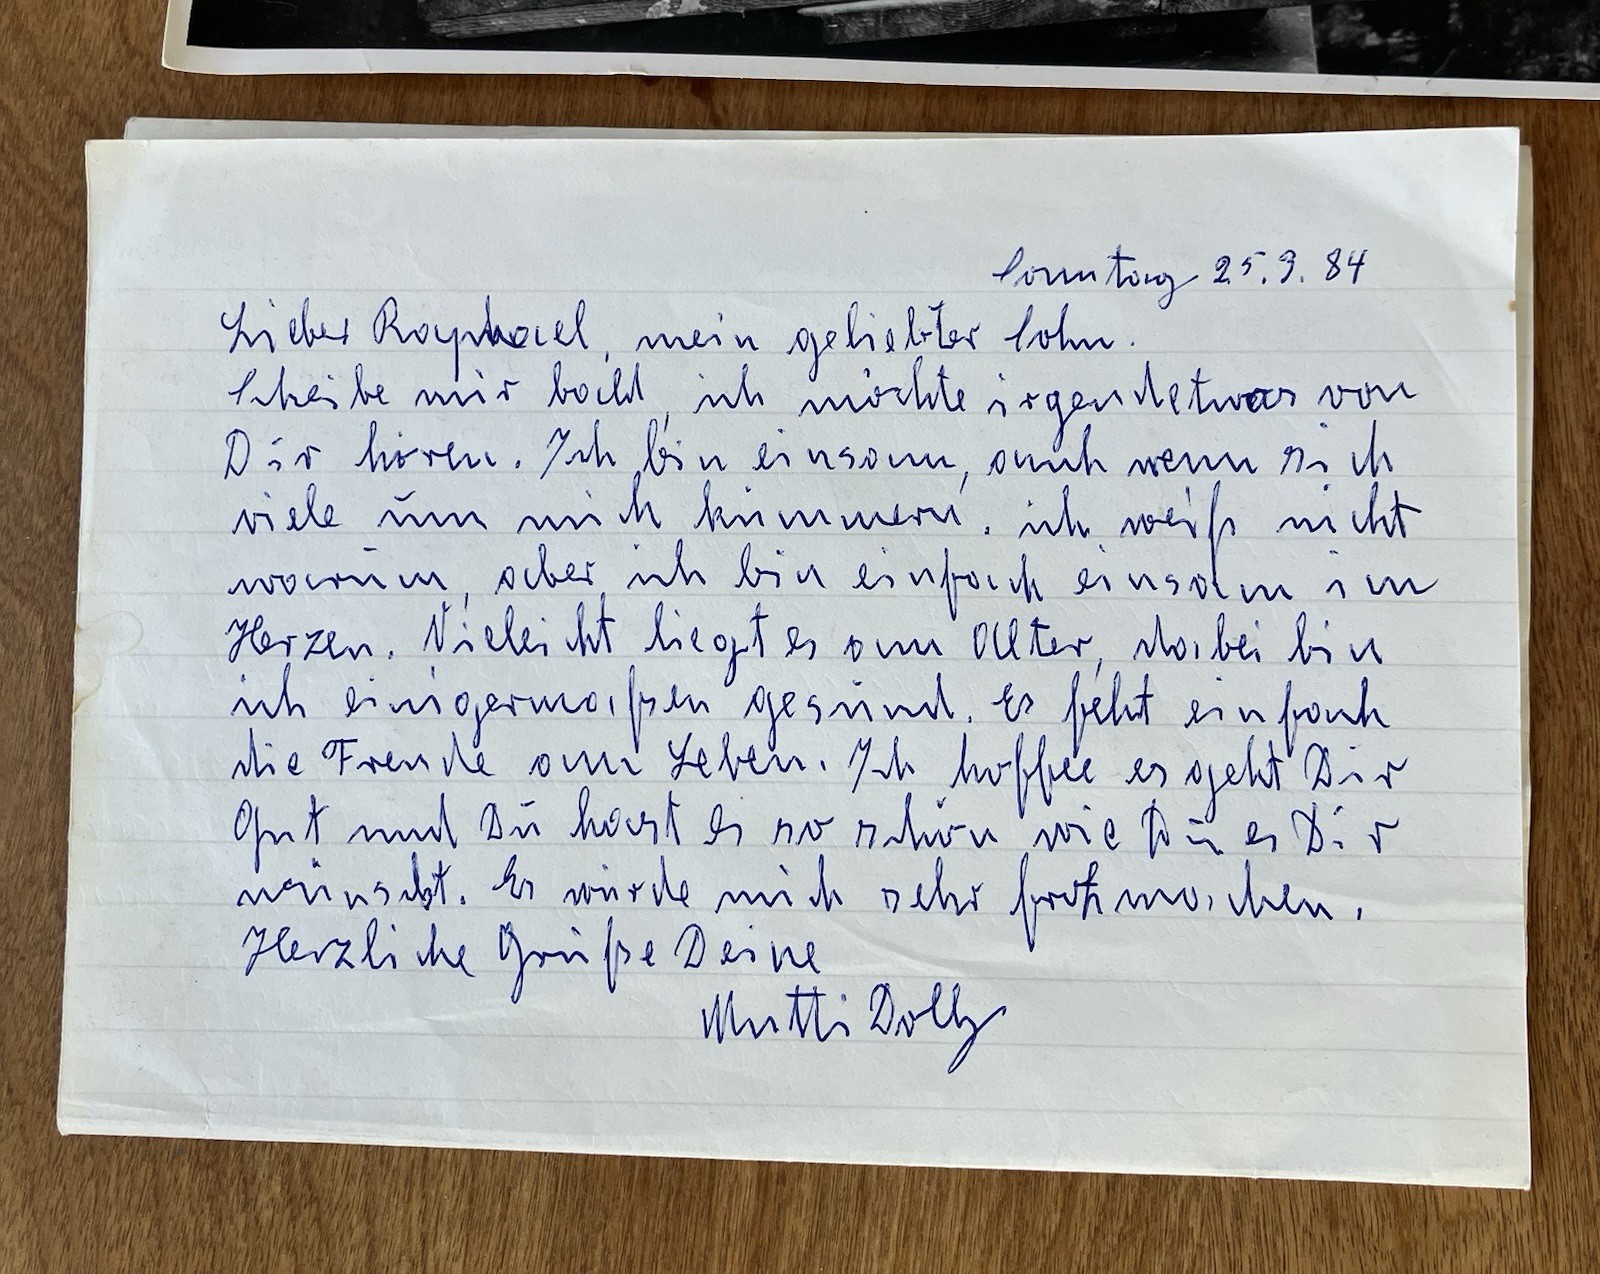 Sonntag 25.3.84
Lieber Raphael, mein geliebter Sohn.
Scheibe mir bald, ich möchte irgendetwas von
Dir hören. Ich bin einsam, auch wenn sich
viele um mich kümmern. ich weiß nicht
warum, aber ich bin einfach einsam im
Herzen. Vieleicht liegt es am Alter, dabei bin
ich einigermaßen gesund. Es fehlt einfach
die Freude am Leben. Ich hoffee es geht Dir
Gut und Du hast es so schön wie Du es Dir
wünscht. Es würde mich sehr froh machen.
Herzliche Grüße Deine
Mutti Dolly